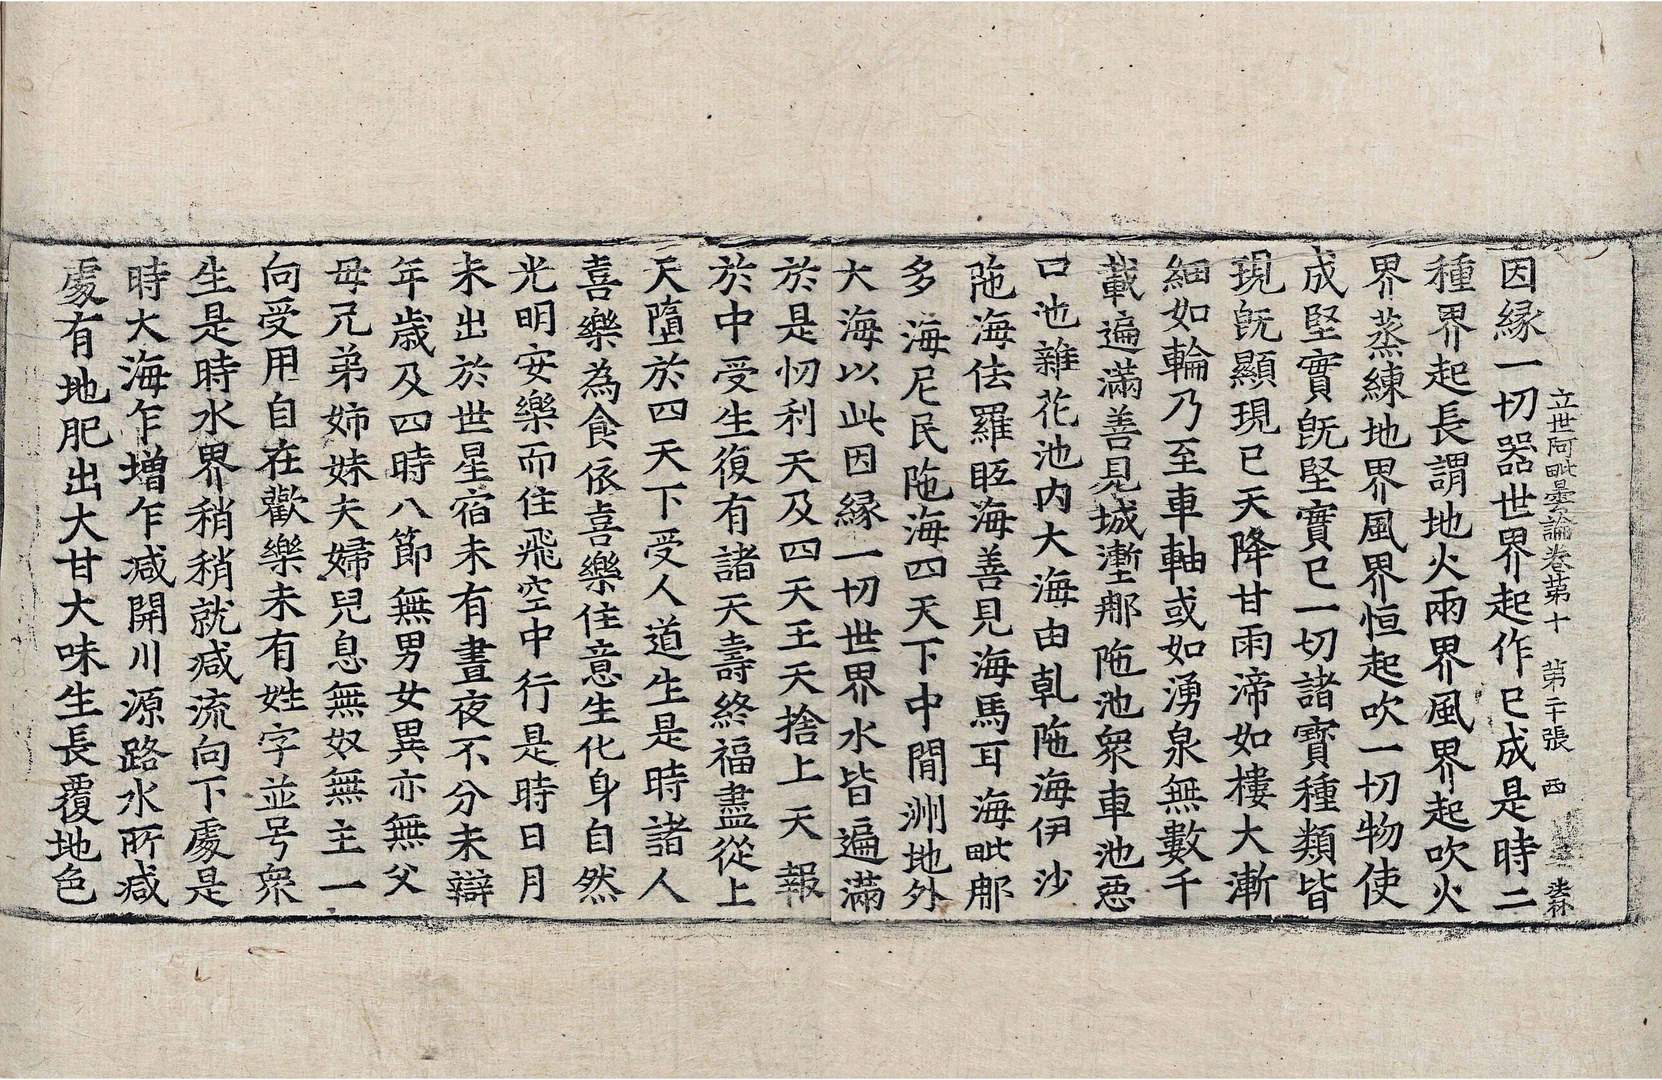 立世阿毗曇論卷第十 第二十張 西
因縁一切器世界起作已成是時二
種界起長謂地火兩界風界起吹火
界蒸練地界風界恒起吹一切物使
成堅實既堅實已一切諸寶種類皆
現既顯現已天降甘雨渧如樓大漸
細如輪乃至車軸或如湧泉無數千
載遍滿善見城壍那陁池衆車池惡
口池雜花池内大海由乹陁海伊沙
陁海佉羅眍海善見海馬耳海毗郍
多海尼民陁海四天下中間洲地外
大海以此因縁一切世界水皆遍滿
於是忉利天及四天王天捨上天報
於中受生復有諸天壽終福盡從上
天墮於四天下受人道生是時諸人
喜樂為食依喜樂住意生化身自然
光明安樂而住飛空中行是時日月
未出於世星宿未有晝夜不分未辯
年歳及四時八節無男女異亦無父
母兄弟姉妹夫婦兒息無奴無主一
向受用自在歡樂未有姓字並号衆
生是時水界稍稍就减流向下處是
時大海乍增乍减開川源路水所减
處有地肥出大甘大味生長覆地色